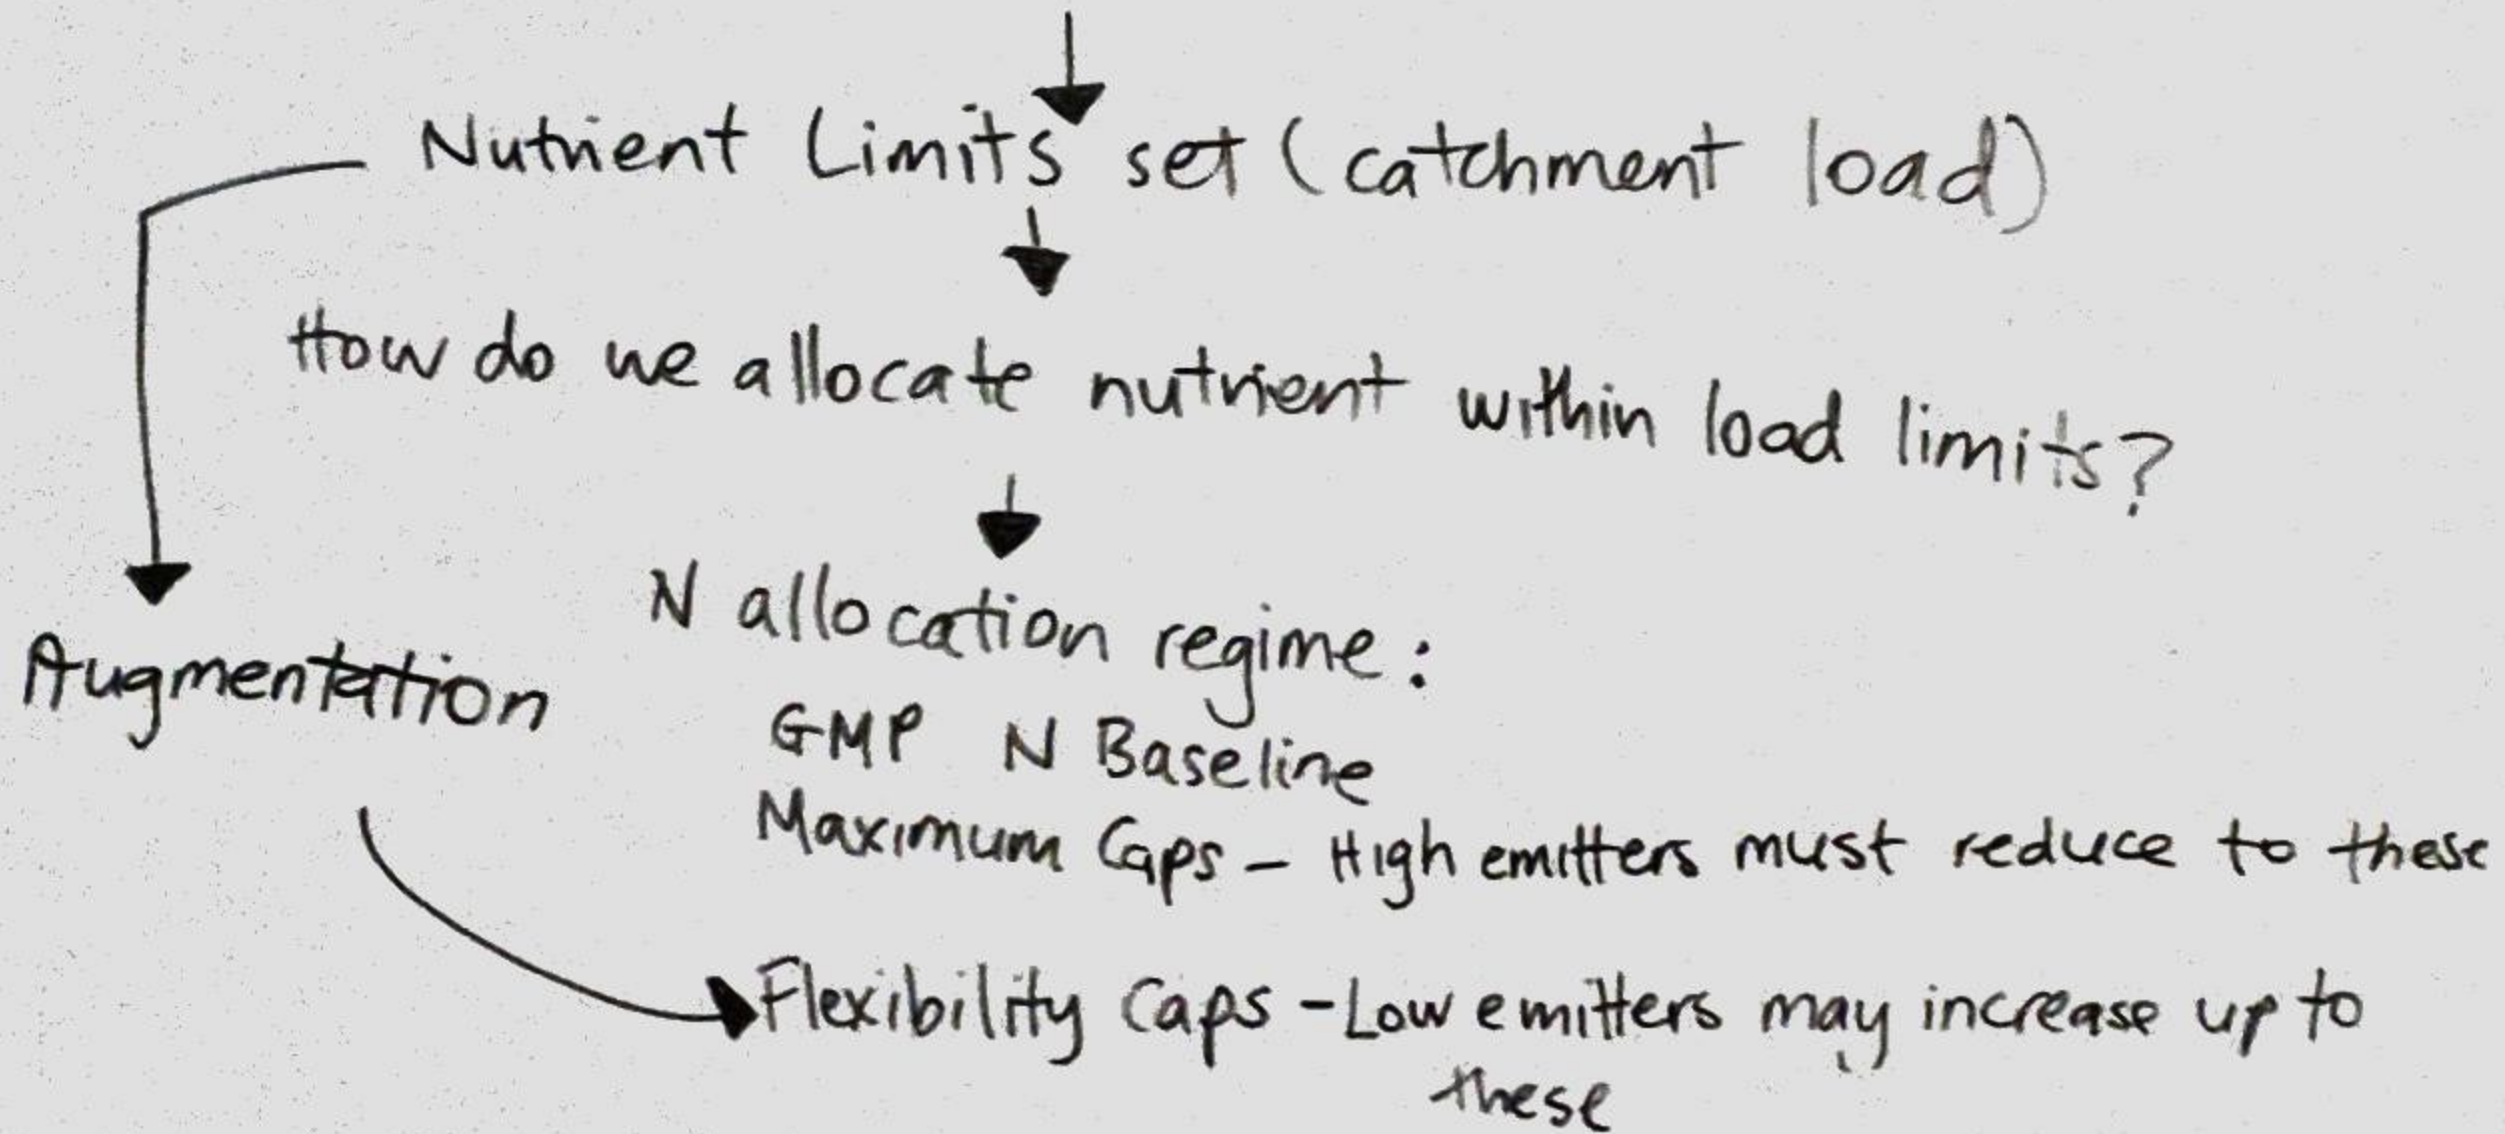 Nutrient Limits set (catchment load)
How do we allocate nutrient within load limits?
N allocation regime:
Augmentation
GMP N Baseline
Maximum Caps - High emitters must reduce to these
Flexibility Caps - Low emitters may increase up to
these